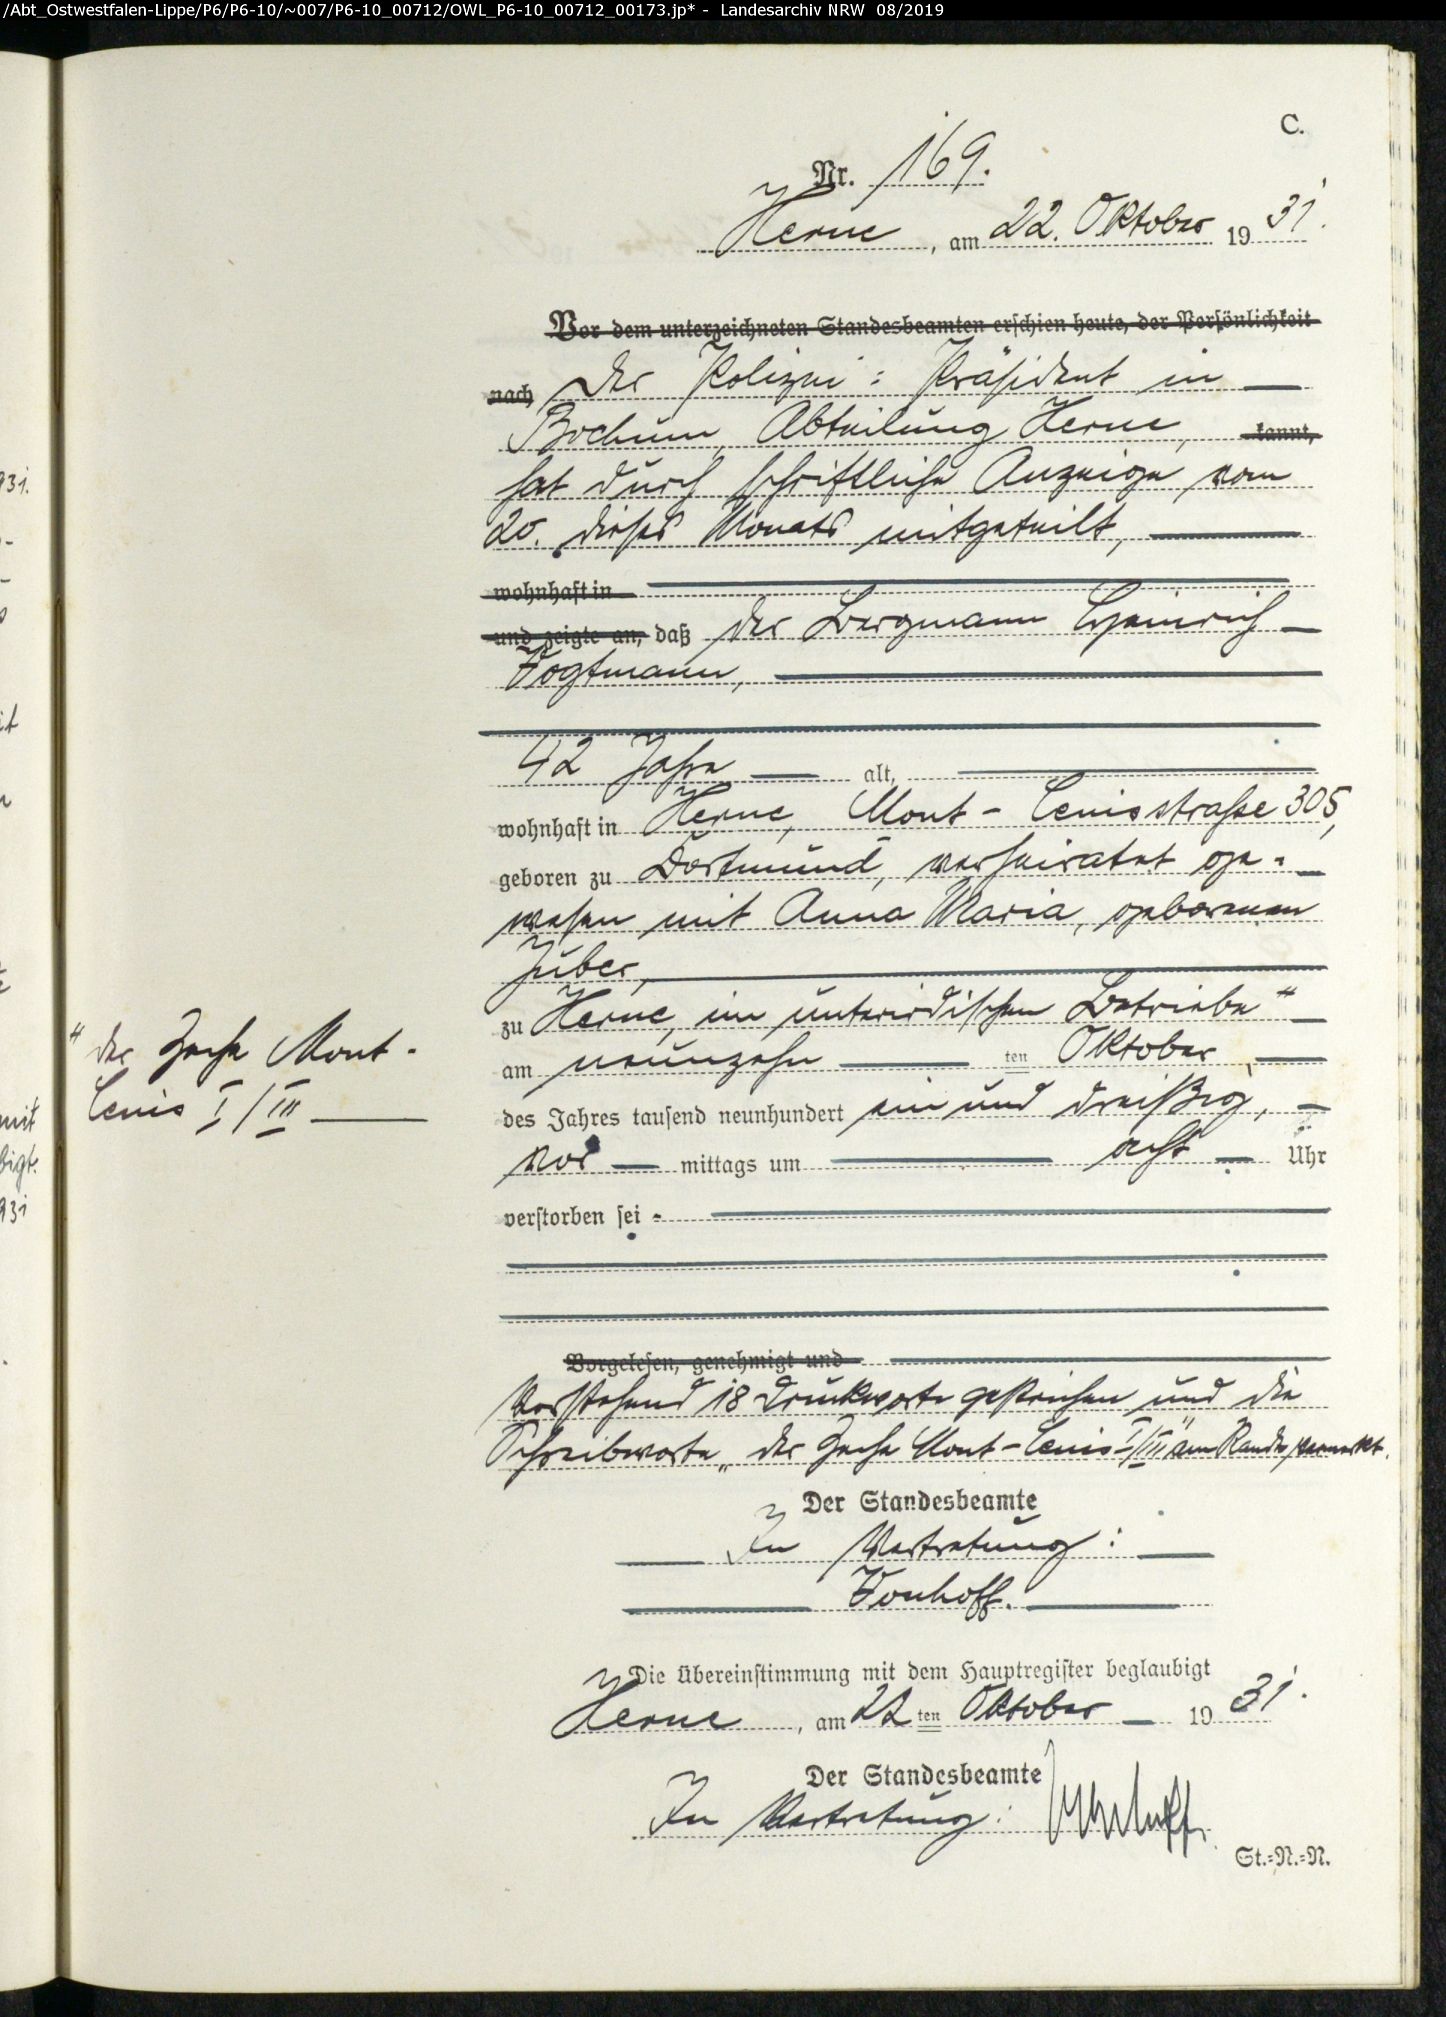 /Abt_Ostwestfalen-Lippe/P6/P6-10/~007/P6-10_00712/OWL_P6-10_00712_00173.jp* - Landesarchiv NRW 08/2019
C.
Nr. 169.
Herne, am 22. Oktober 1931.
Vor dem unterzeichneten Standesbeamten erschien heute, der Persönlichkeit
nach Der Polizei: Präsident in
Bochum, Abteilung Herne, kannt,
hat durch schriftliche Anzeige vom
20. dieses Monats mitgeteilt,
wohnhaft in
und zeigte an, daß der Bergmann Heinrich
Vogtmann,
42 Jahre alt,
wohnhaft in Herne, Mont-Cenisstraße 305,
geboren zu Dortmund, verheiratet ge-
wesen mit Anna Maria, geborenen
Zuber,
zu Herne, im unterirdischen Betriebe "
" der Zeche Mont-
Cenis I/III
am neunzehnten Oktober
des Jahres tausend neunhundert einunddreißig,
vormittags um acht Uhr
verstorben sei.
Vorgelesen, genehmigt und
Vorstehend 18 Druckworte gestrichen und die
Schreibworte „der Zeche Mont-Cenis I/III" am Rande vermerkt.
Der Standesbeamte
In Vertretung:
Vonhoff.
Die Übereinstimmung mit dem Hauptregister beglaubigt
Herne, am 22ten Oktober 1931.
Der Standesbeamte
In Vertretung: Vonhoff
St.=N.=N.
931.
mit
bigt.
931